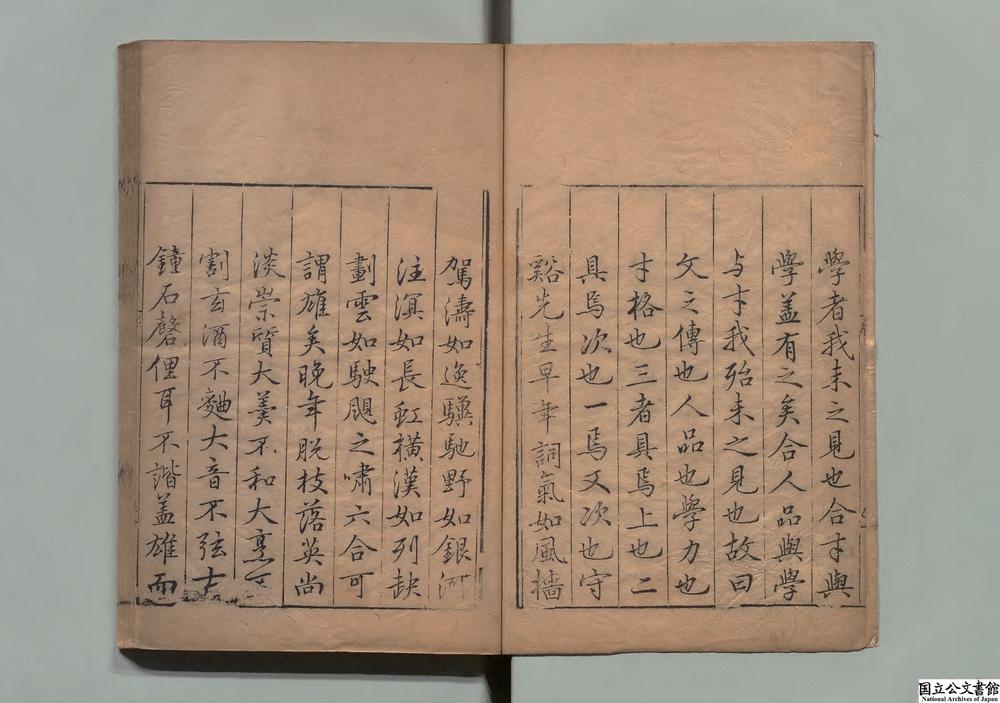 學者我未之見也合才與
學盖有之矣合人品與學
与才我殆未之見也故曰
文之傳也人品也學力也
才格也三者具焉上也二
具焉次也一焉又次也守
谿先生早年詞氣如風檣
駕濤如逸驥馳野如銀河
注溟如長虹横漢如列缺
劃雲如駛飈之嘯六合可
謂雄矣晚年脱枝落英尚
淡崇質大羹不和大烹不
割玄酒不麯大音不弦土
鐘石磬俚耳不諧盖雄而
国立公文書館
National Archives of Japan